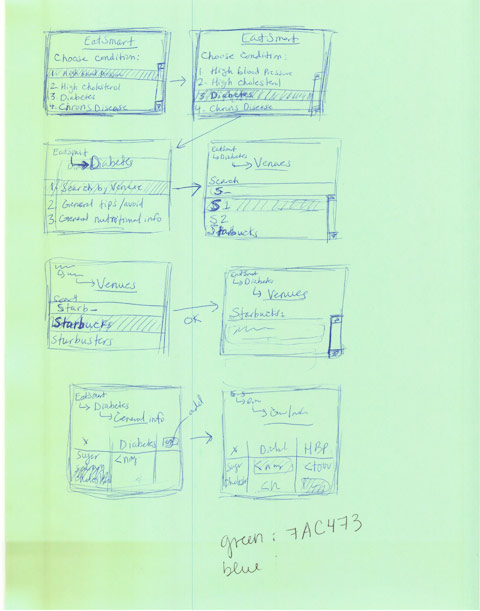 EatSmart
Choose Condition:
1. High Blood Pressure
2 High Cholesterol
3 Diabetes
4. Chron's Disease
EatSmart
Choose Condition:
1. High blood Pressure
2. High Cholesterol
3. Diabetes
4. Chron's Disease
EatSmart
Diabetes
1. Search by Venue
2 General tips/avoid
3 General nutritional info
EatSmart
↳ Diabetes
↳ Venues
Search
S_
S1
S2
Starbucks
↳ Venues
Search
Starb_
Starbucks
Starbusters
OK
EatSmart
↳ Diabetes
↳ Venues
Starbucks:
EatSmart
↳ Diabetes
↳ General info
add
X Diabetes
Sugar
X HBP
Sugar
green: 7AC473
blue: